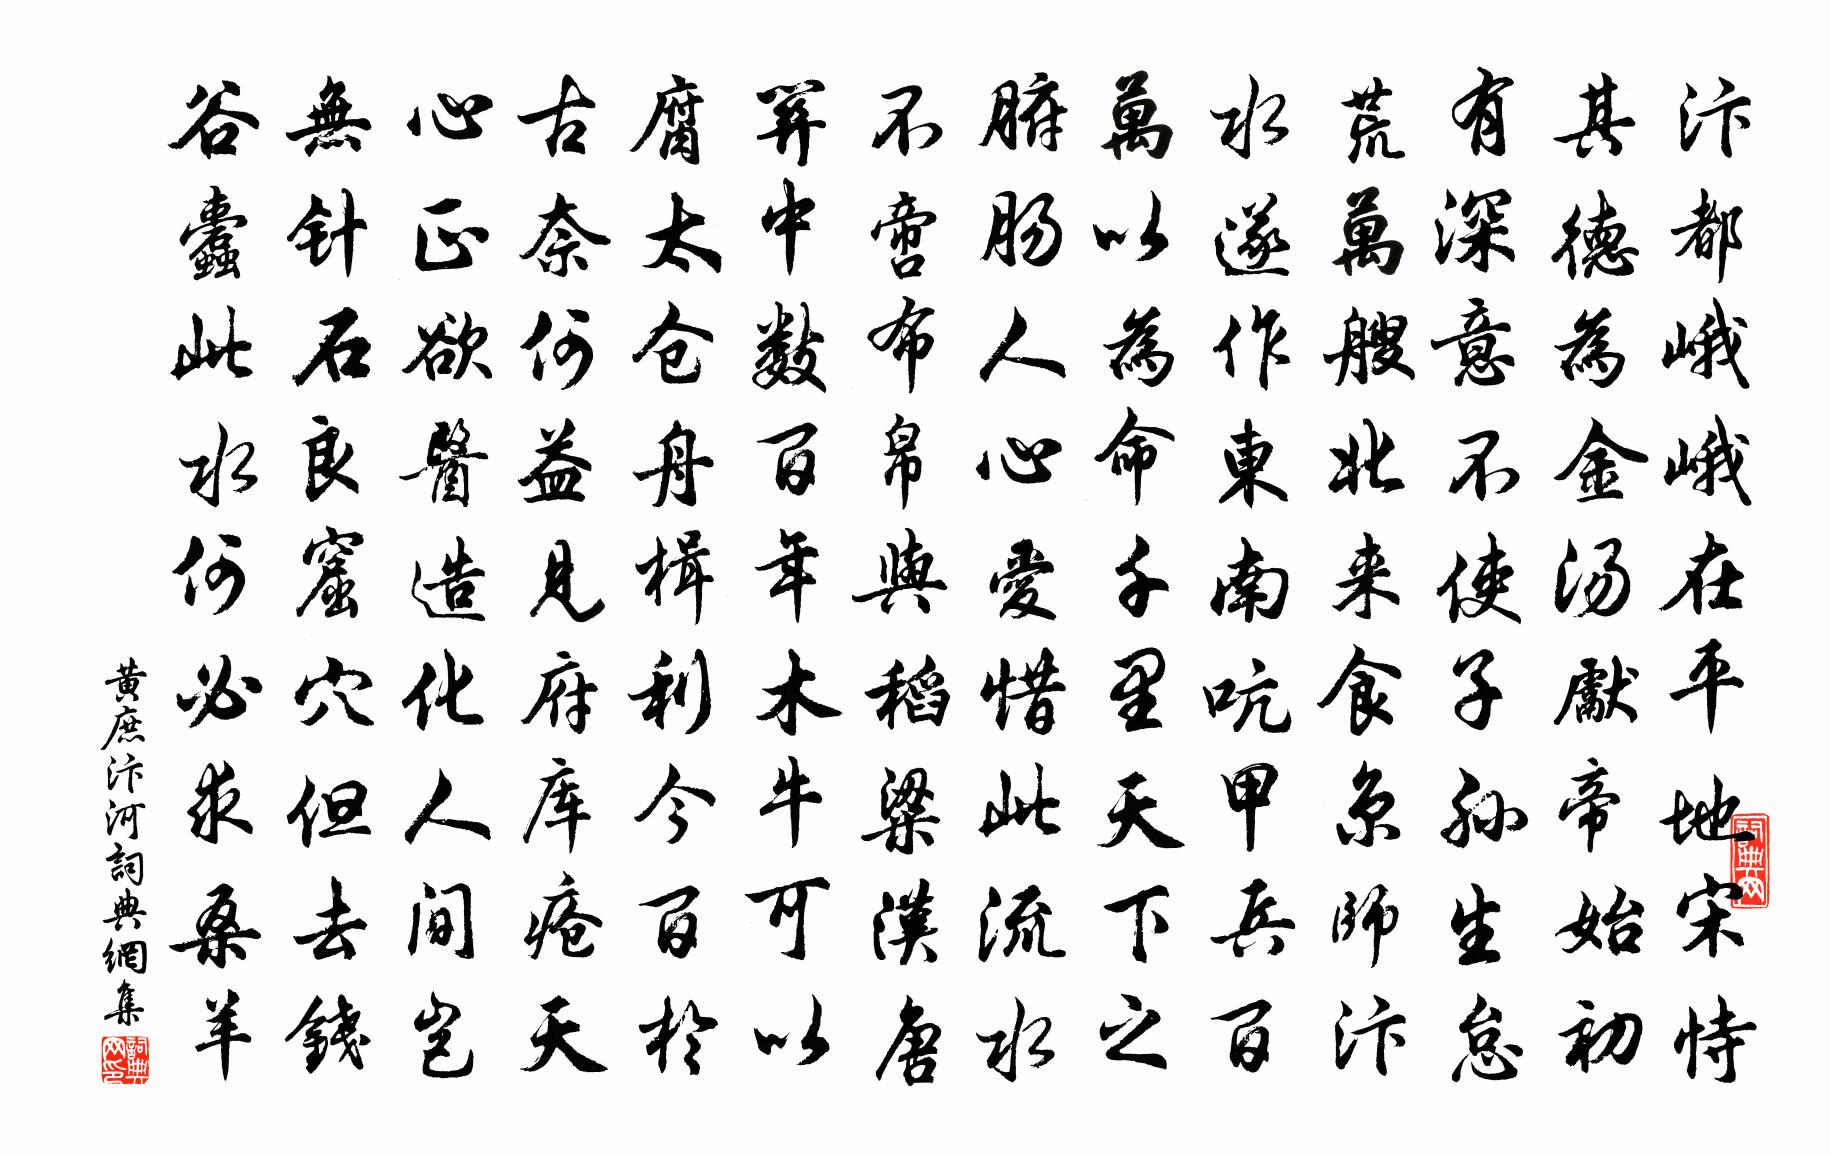 汴都峨峨在平地宋恃
其德為金汤獻帝始初
有深意不使子孙生怠
荒萬艘北来食京師汴
水遂作東南吭甲兵百
萬以為命千里天下之
腑肠人心愛惜此流水
不啻布帛與稻粱漢唐
幷中数百年木牛可以
腐太仓舟楫利今百於
古奈何益見府库疮天
心正欲醫造化人间岂
無针石良窟穴但去錢
谷蠹此水何必求桑羊
黄庶汴河詞典網集
詞典网
詞典网